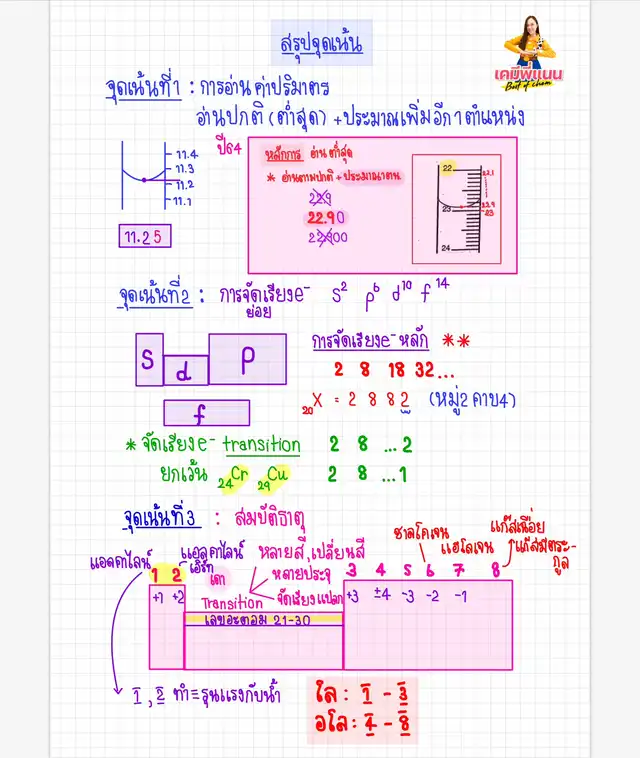 สรุปจุดเน้น
เคมีพี่แนน
Best of chem
จุดเน้นที่1 : การอ่านค่าปริมาตร
อ่านปกติ(ต่ำสุด) + ประมาณเพิ่มอีก1ตำแหน่ง
11.4
11.3
11.2
11.1
11.25
ปี64
หลักการ อ่านต่ำสุด
* อ่านตามปกติ + ประมาณาตน
22.9
22.90
22.900
22
22.1
22.9
23
23
24
จุดเน้นที่2 : การจัดเรียงe⁻ย่อย s² p⁶ d¹⁰ f¹⁴
s d p
f
การจัดเรียงe⁻หลัก **
2 8 18 32...
₂₀X = 2 8 8 2 (หมู่2 คาบ4)
* จัดเรียงe⁻ transition 2 8 ...2
ยกเว้น ₂₄Cr ₂₉Cu 2 8 ...1
จุดเน้นที่3 : สมบัติธาตุ
แอลคาไลน์
แอลคาไลน์เอิร์ท
หลายสี,เปลี่ยนสี
เดา
หลายประจุ
จัดเรียงแปลก
ชาลโคเจน
แฮโลเจน
แก๊สเฉื่อย
แก๊สมีตระกูล
1 2 3 4 5 6 7 8
+1 +2 +3 ±4 -3 -2 -1
Transition
เลขอะตอม 21-30
1, 2 ทำ≡รุนแรงกับน้ำ
โล : 1 - 3
อโล : 4 - 8